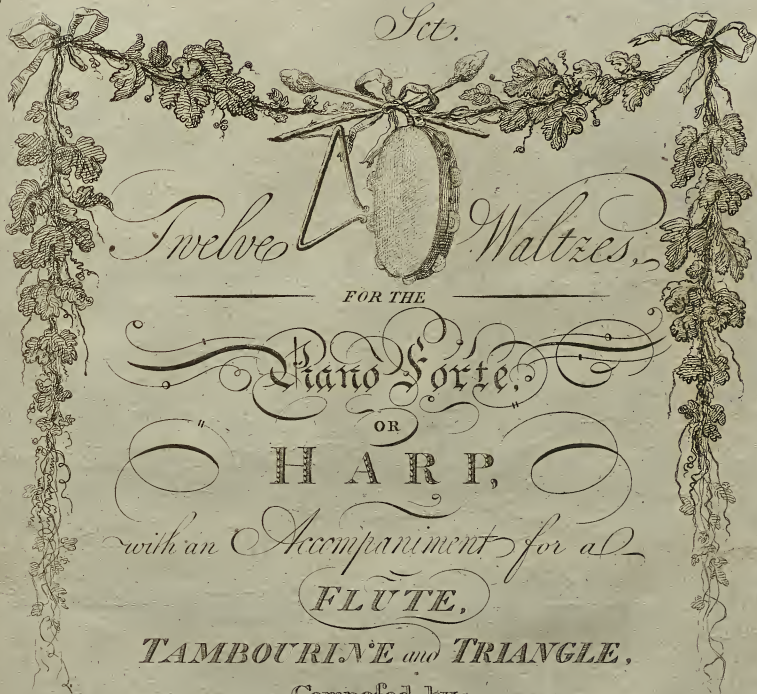 Set.
Twelve Waltzes,
FOR THE
Piano Forte,
OR
HARP,
with an Accompaniment for a
FLUTE,
TAMBOURINE and TRIANGLE,
Composed by